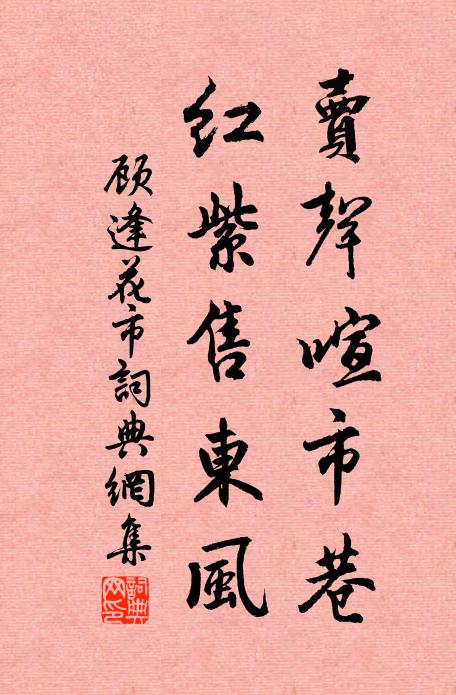 賣聲喧市巷
紅紫售東風
顧逢花市詞典網集
詞典网印